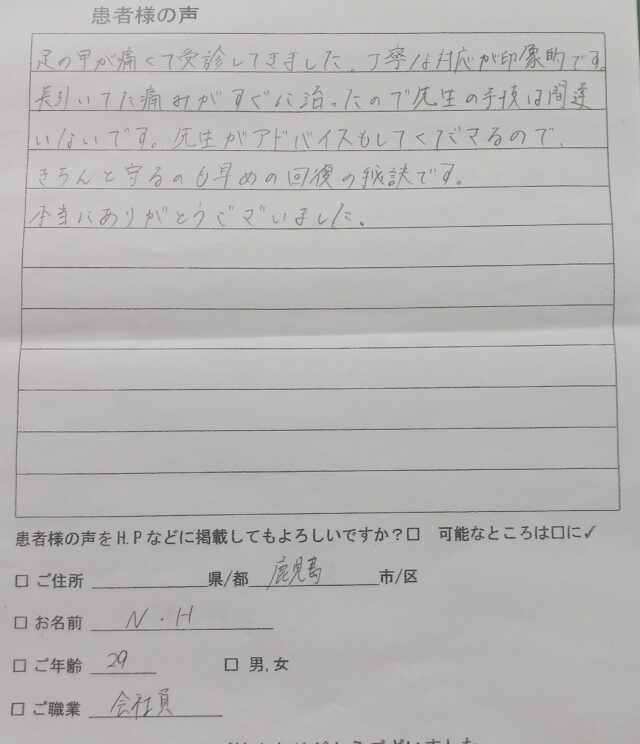 患者様の声
足の甲が痛くて受診してきました。丁寧な対応が印象的です。
長引いてた痛みがすぐに治ったので先生の手技は間違
いないです。先生がアドバイスもしてくださるので、
きちんと守るのも早めの回復の秘訣です。
本当にありがとうございました。
患者様の声をH.Pなどに掲載してもよろしいですか？□ 可能なところは□に✓
□ ご住所 県/都 鹿児島 市/区
□ お名前 N・H
□ ご年齢 29 □ 男,女
□ ご職業 会社員